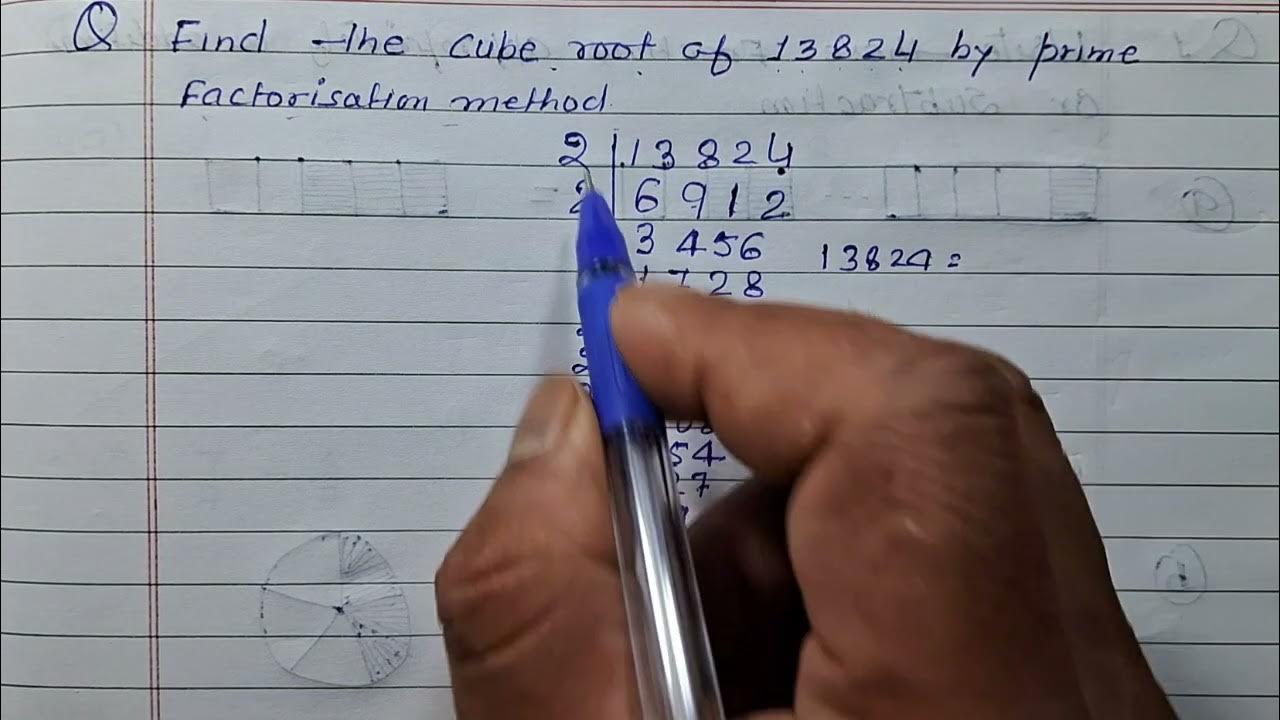 Q Find the cube root of 13824 by prime
factorisation method.
2 13824
2 6912
3456
13824 =
1728
2
2
54
27